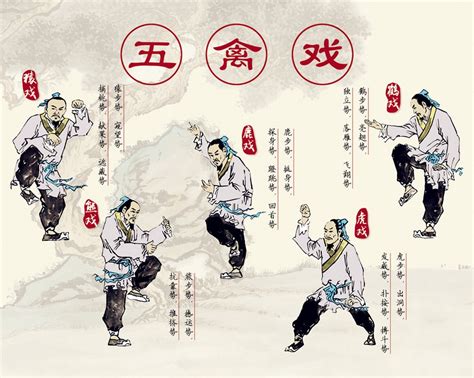 五禽戏
猿戏
猿步势、窥望势、
摘桃势、献果势、逃藏势
鹤戏
鹤步势、亮翅势、
独立势、落雁势、飞翔势
鹿戏
鹿步势、挺身势、
探身势、蹬跳势、回首势
熊戏
熊步势、撼运势、
抗靠势、推挤势
虎戏
虎步势、出洞势、
发威势、扑按势、搏斗势